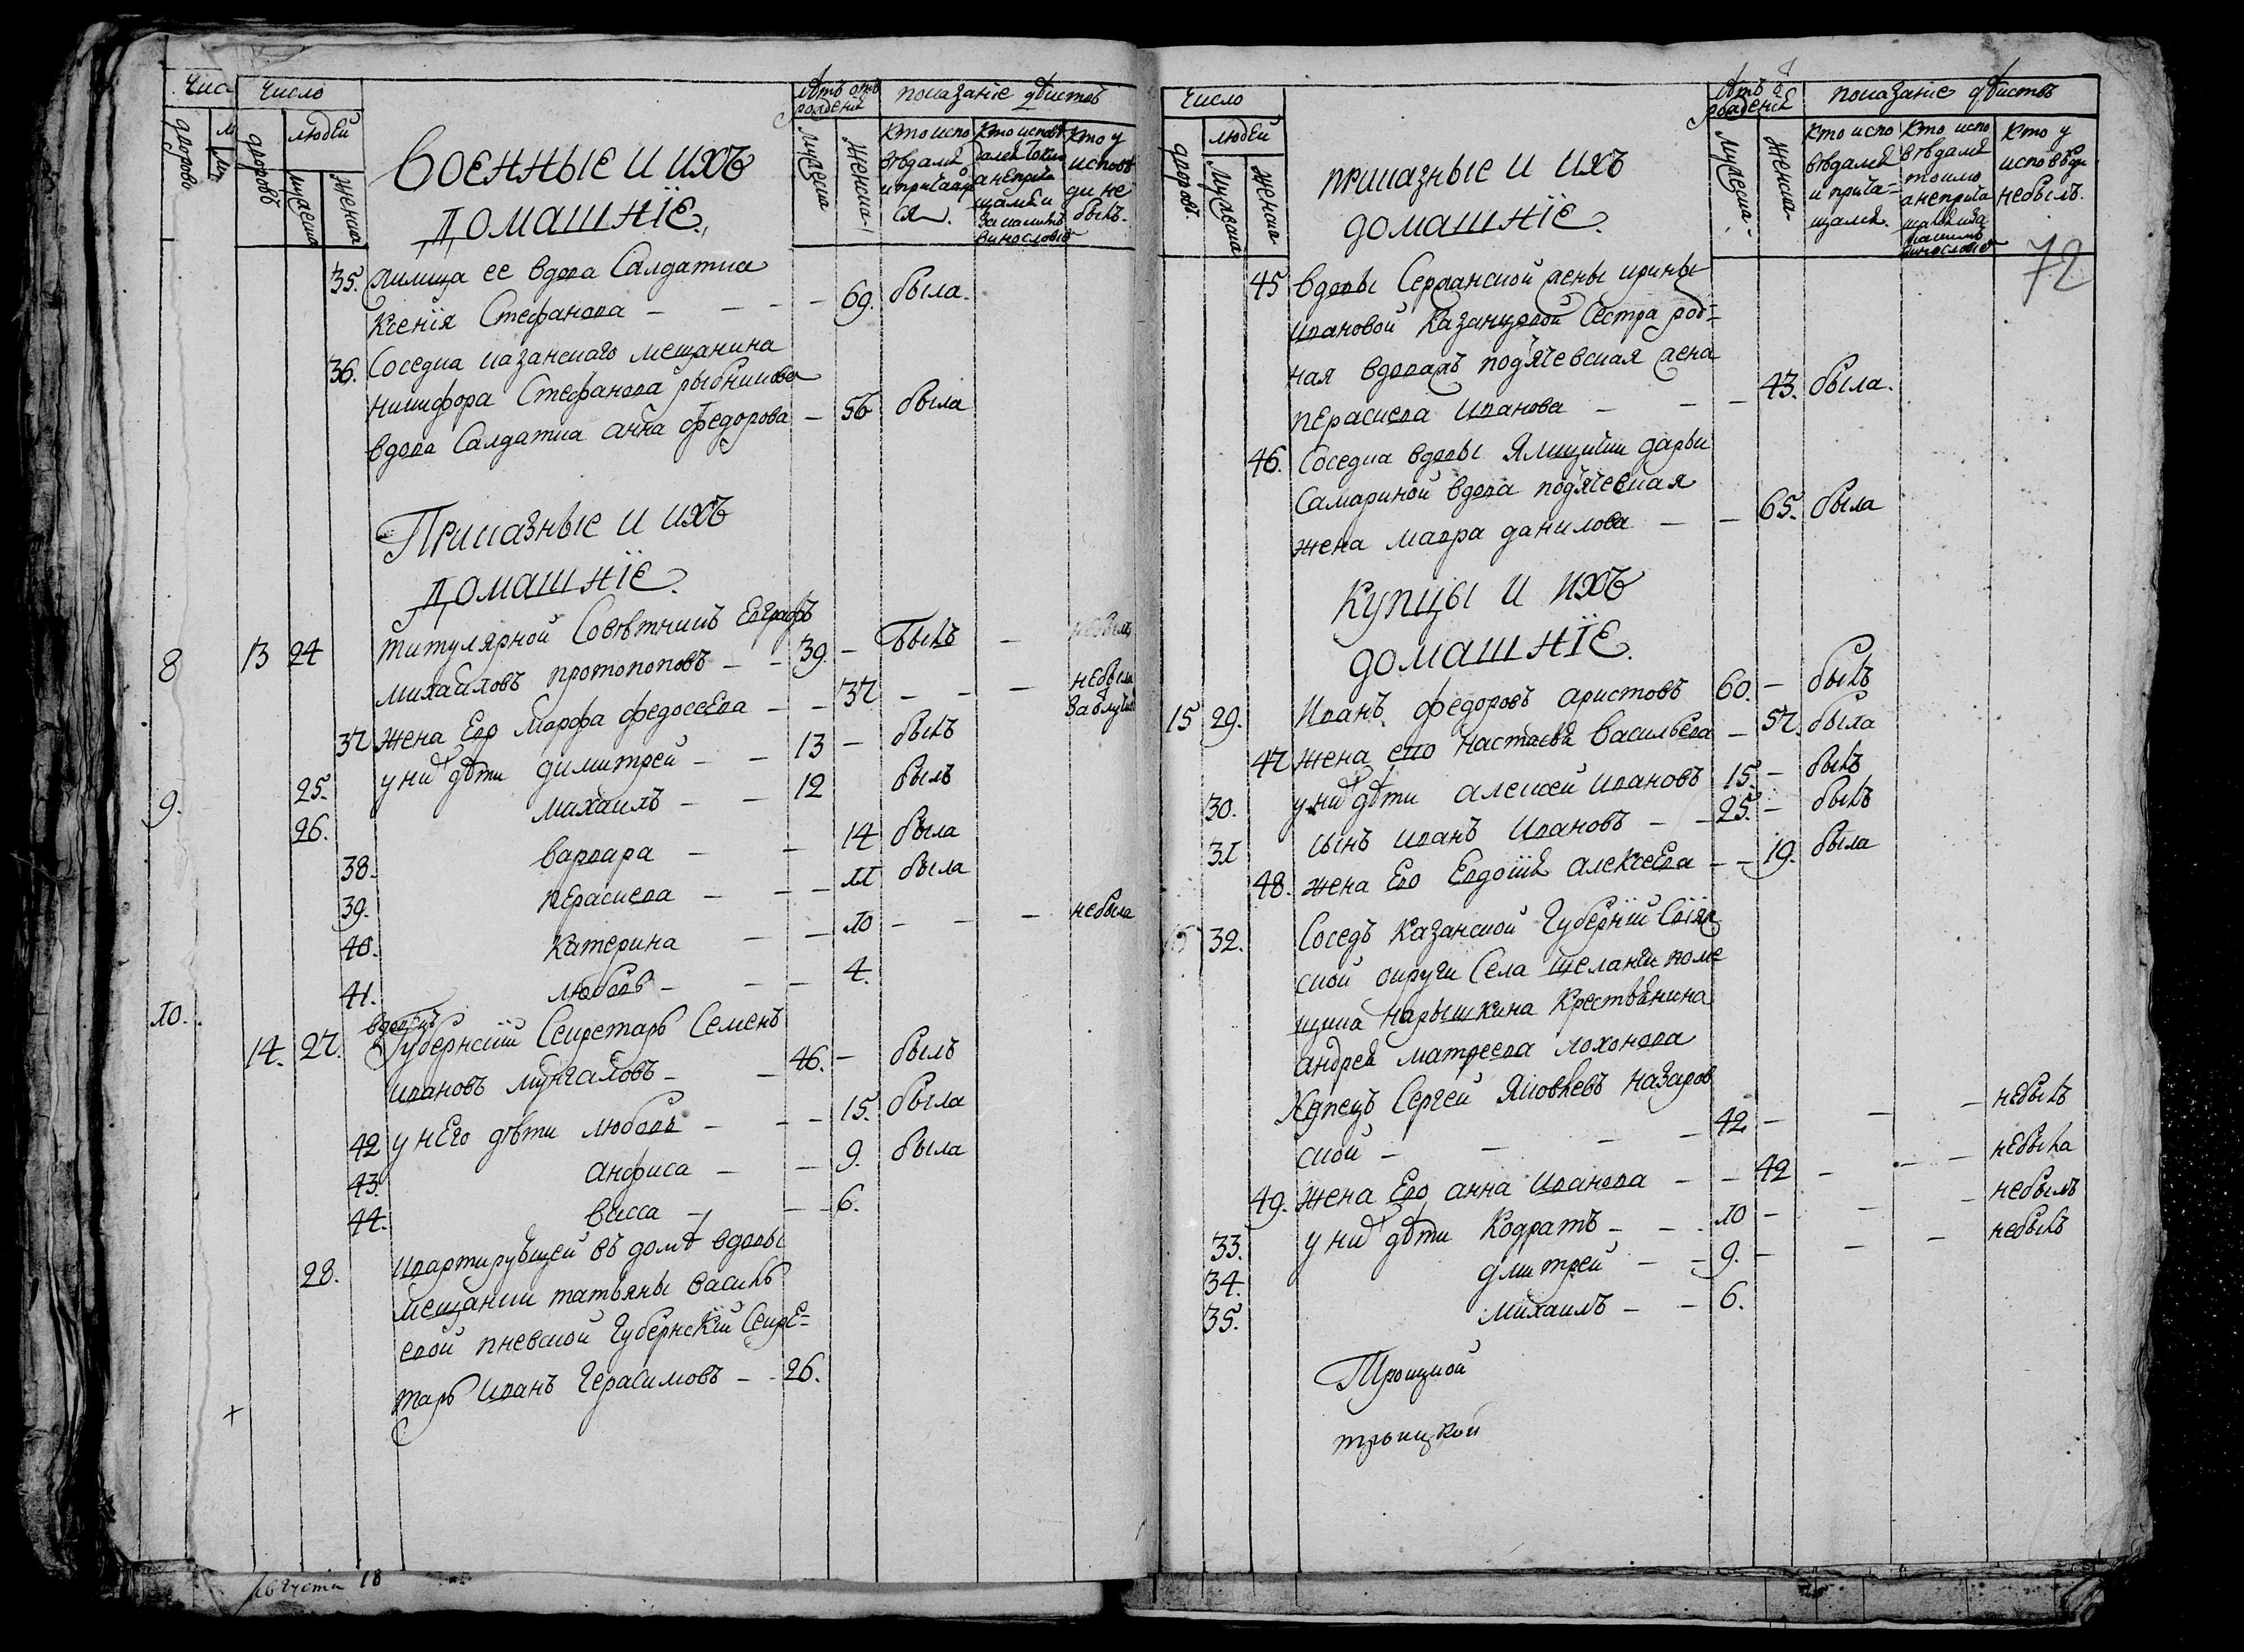 Число
Число
людей
дворовъ
дворовъ
мужеска
женска
Военные и ихъ
домашнїе.
лѣтъ отъ
рождения
мужеска
женска
показанїе дѣиствъ
кто испо
вѣдался
и причащал
ся.
кто исповѣ
дался токмо
а неприча
щался и
за какимъ
винословиемъ
кто у
исповѣ
ди не
былъ.
35. жилица ее вдова Салдатка
Ксенїя Стефанова - - - 69. была.
36. Соседка казанскаго мещанина
никифора Стефанова рыбникова
вдова Салдатка анна федорова - 56 была
Приказные и ихъ
домашнїе.
8 13 24 титулярной Советникъ Евграфъ
михаиловъ протопоповъ - - 39. - былъ - небылъ
37 жена Его Марфа федосеева - - 37 - - - небыла
25. у них дѣти димитреи - - 13 - былъ
9. 26. михаилъ - - 12 былъ
38. варвара - - 14 была
39. перасковa - - - 11 была
40. катерина - - 10 - - - небыла
41. любовь - - - 4.
10. вдовецъ
14. 27. Губернскїи Секретарь Семенъ
ивановъ мунгаловъ - - 46. - былъ
42 у нЕго дѣти любовь - - - 15. была
43. анфиса - - 9. была
44. васса - - - 6.
28. квартирующеи въ домѣ вдовы
мещанки татьяны василь
евой пневской Губернскїй Секре=
тарь иванъ Герасимовъ - - 26.
+
18
72
Число
людей
дворовъ
мужеска
женска
приказные и ихъ
домашнїе.
лѣтъ о
рождения
мужеска
женска
показанїе дѣиствъ
кто испо
вѣдался
и прича=
щался.
кто испо
вѣдался
токмо
а неприча
щался и за
какимъ
винословие
кто у
исповѣди
небылъ.
45 вдовы Сержанской жены ирины
ивановой Казанцовой Сестра род=
ная вдова подъячевская жена
перасковa иванова - - - 43. была.
46. Соседка вдовы Ямщички дарьи
Самариной вдова подъячевская
жена мавра данилова - - 65. была
Купцы и ихъ
домашнїе.
15 29. Иванъ федоровъ аристовъ 60. - былъ
47 жена его настасья васильева - 57. была
30. у них дѣти алексеи ивановъ 15. - былъ
31 сынъ иванъ ивановъ - - 25. - былъ
48. жена Его Евдокїя алексеева - - 19. была
32. Соседъ казанской Губернїи Свїяж
ской округи Села щеланги поме
щика нарышкина крестьянина
андрея матвеева лохонова
Купецъ Сергеи Яковлевъ назаров
ской - - - - 42. - - - небылъ
49. жена Его анна иванова - - 42 - - - небыла
33. у них дѣти кодратъ - - - 10 - - - небылъ
34. дмитреи - - 9. - - - небылъ
35. михаилъ - - 6.
Троицкой
троицкой